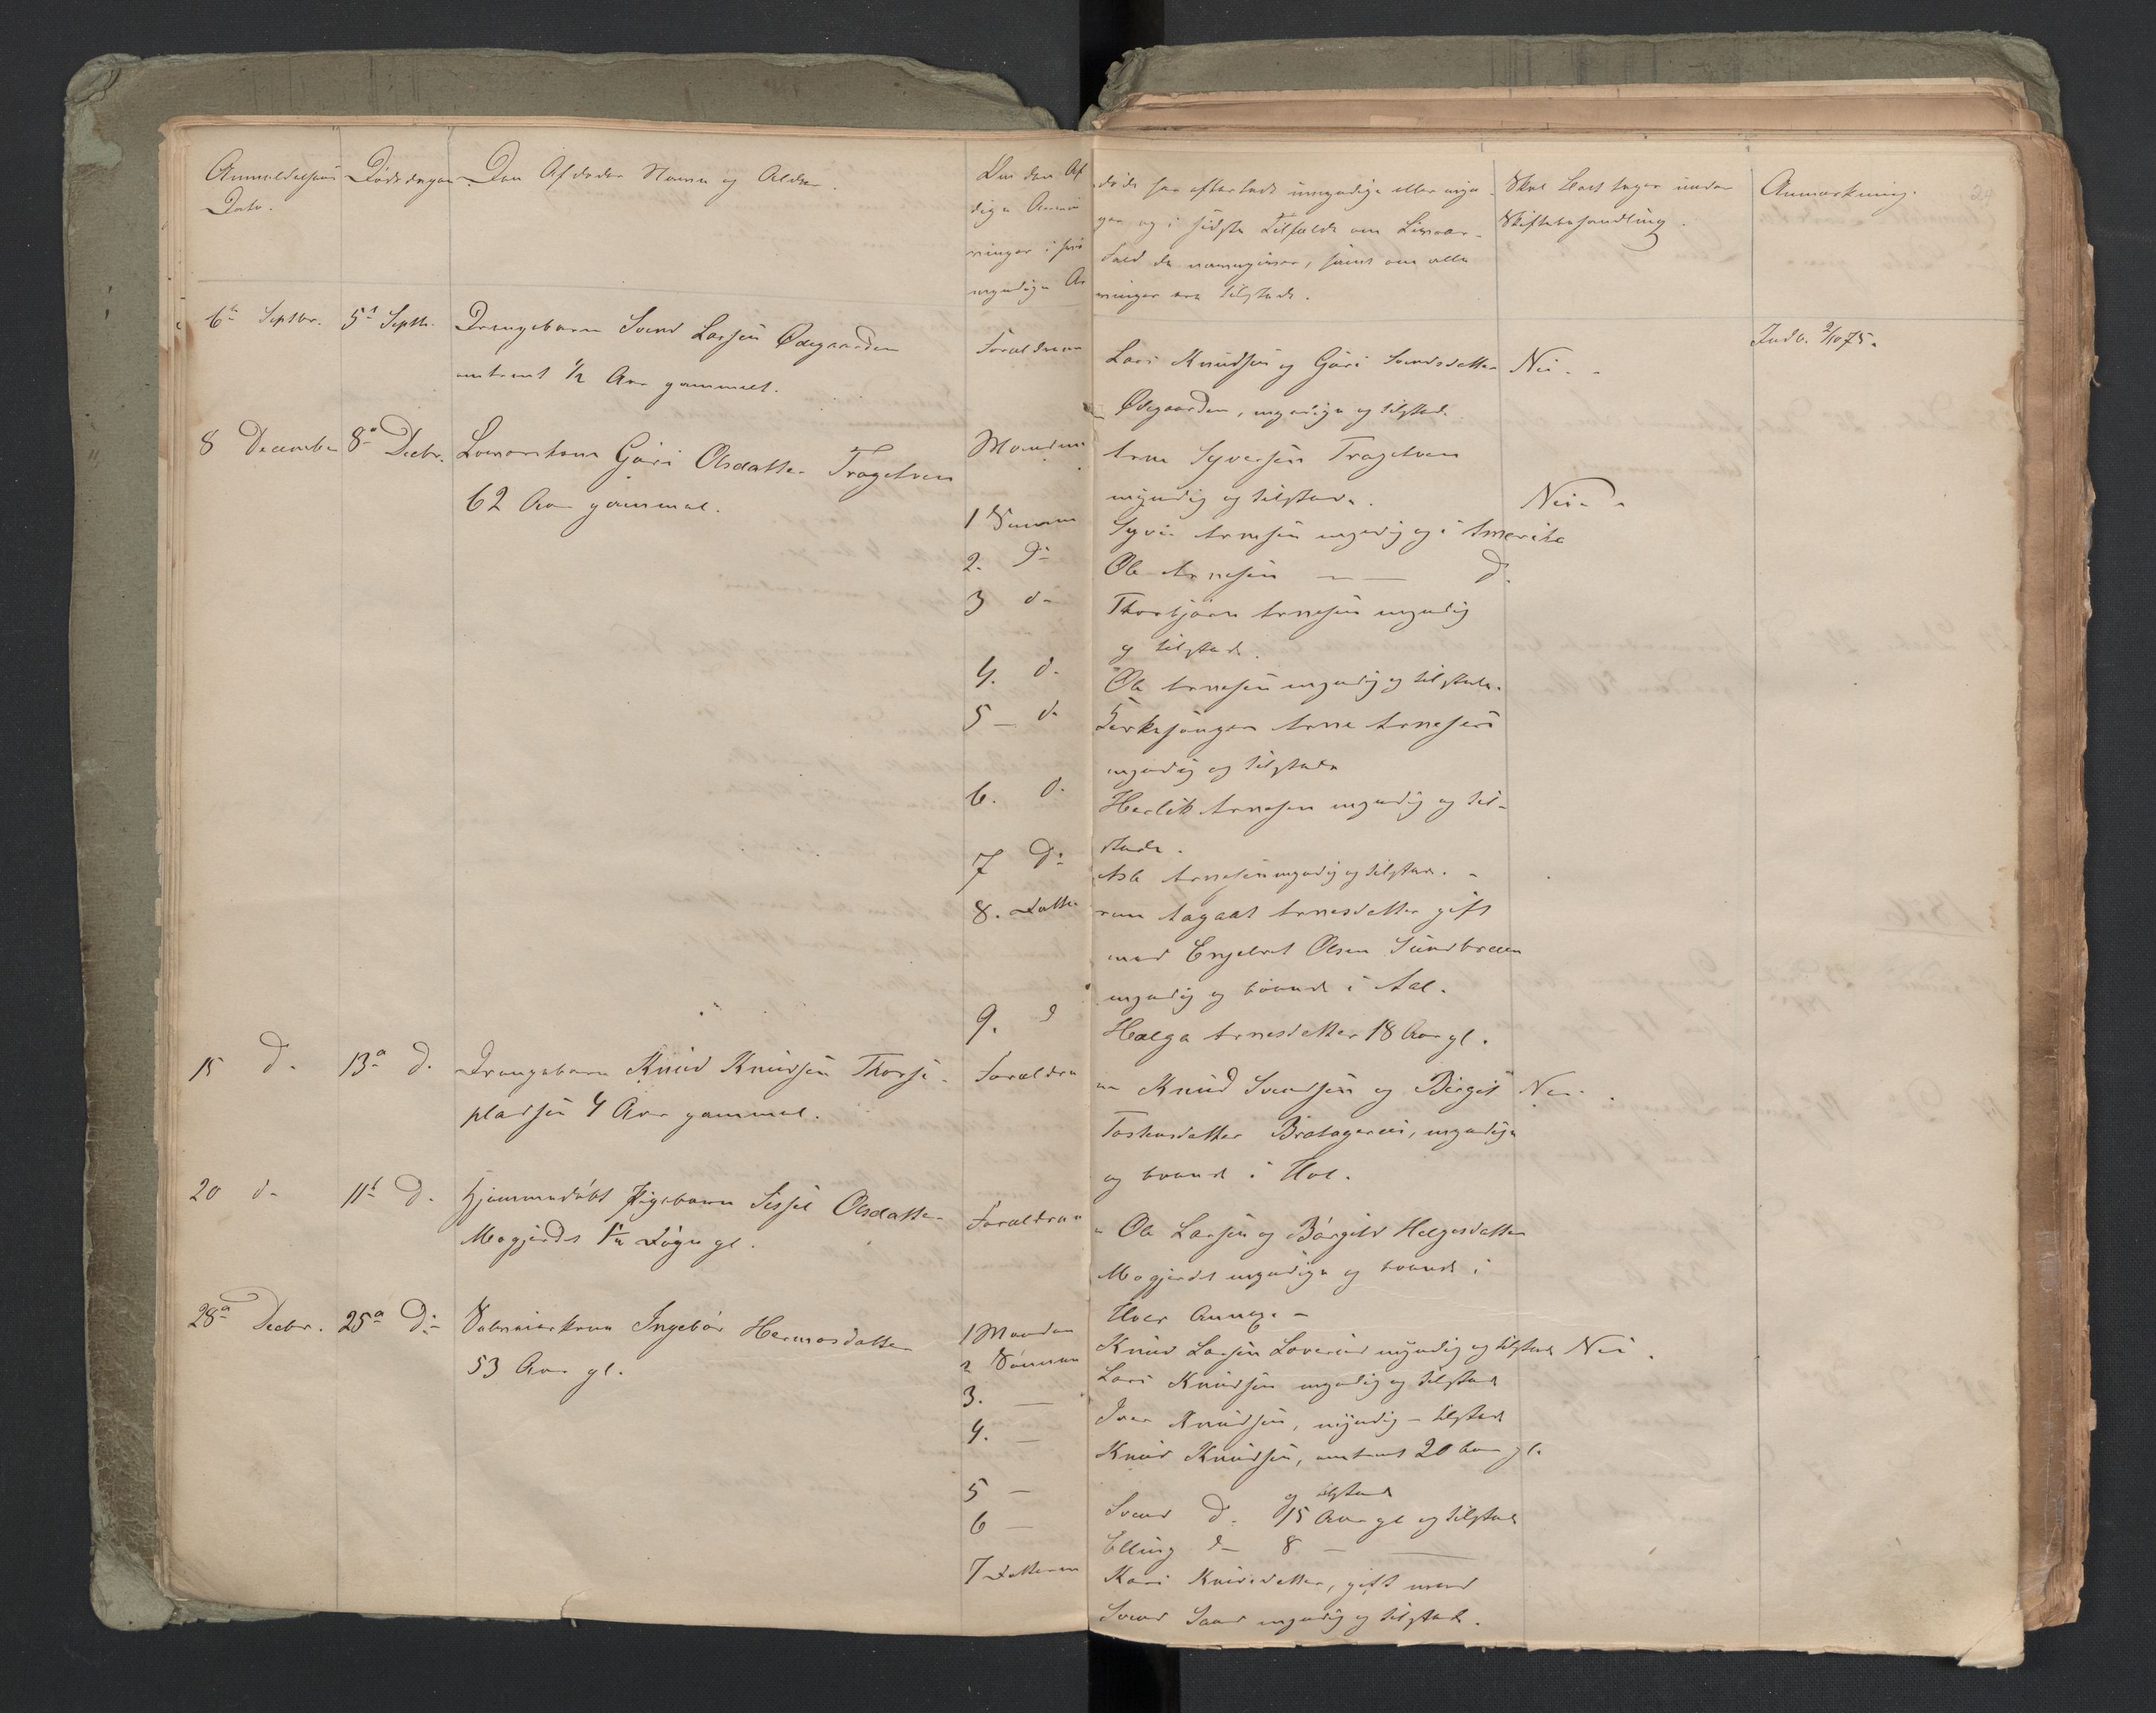 Anmeldelsens Dato.
Dødsdagen
Den Afdødes Navn og Alder.
Om den Af
døde har efterladt umyndige eller myn-
dige Arvin
ger og i sidste Tilfælde om
ninger i
de
myndige Ar
vinger ere tilstede.
Skal Boet tages under
Skiftebehandling.
Anmærkning.
6te Septbr. 5te Septbr. Drengebarn Svend Larsen Ødegaarden
omtrent ½ Aar gammelt.
Forældrene
Lars Knudsen og Guri Svendsdatter Nei.
Ødegaarden, myndige og tilstede.
Indb. 2/10 75.
8 December 8de Decbr. Guri Olsdatter Trageton
62 Aar gammel.
Manden
Arne Syversen Trageton
myndig og tilstede. Nei.
1 Sønnen Syver Arnesen myndig og i Amerika
2. Do Ole Arnesen — — d.
3 do Thorbjørn Arnesen myndig
og tilstede.
4. d. Ole Arnesen myndig og tilstede.
5 — do Kirkesanger Arne Arnesen
myndig og tilstede
6. d. Herlik Arnesen myndig og til-
stede.
7 Do Asle Arnesen myndig og tilstede.
8. Datte ren Aagaat Arnesdatter gift
med Engebret Olsen Sundbreen
myndig og boende i Aal.
9. d Helga Arnesdatter 18 Aar gl.
15 D. 13de D. Drengebarn Knud Knudsen Thorse-
pladsen 4 Aar gammel.
Forældre ne Knud Svendsen og Birgit Nei.
Torstensdatter Bratagerei, myndige
og boende i Hol.
20 d. 11te D. Hjemmedøbt Pigebarn Sissel Olsdatter
Mogjerdet Døgn gl.
Forældrene
Ole Larsen og Børgild Helgesdatter
Mogjerdet myndige og boende i
Hols Annex. —
28de Decbr. 25de Do Ingebør Hermosdatter
53 Aar gl.
1 Manden Knud Larsen myndig og tilstede Nei.
2 Sønnen Lars Knudsen myndig og tilstede
3. — Iver Knudsen, myndig — tilstede
4. — Knud Knudsen, omtrent 20 Aar gl.
og tilstede
5 — Svend D. 15 Aar gl og tilstede
6 — Elling d— 8 — —
7 Datteren Kari Knudsdatter, gift med
Svend myndig og tilstede.